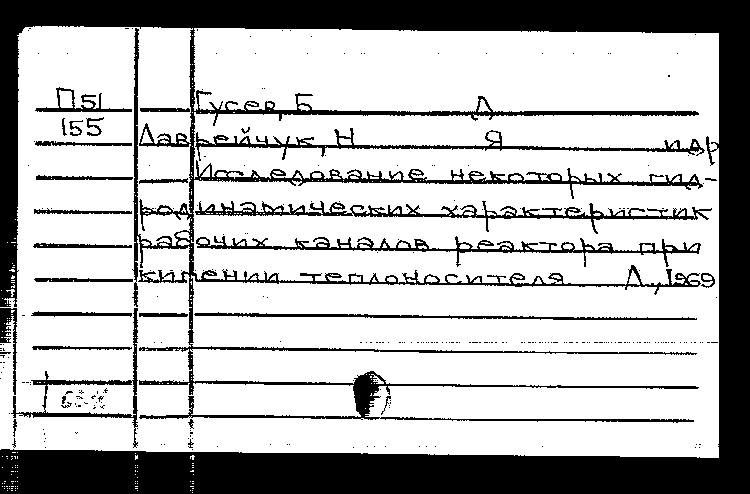 П51 Гусев, Б Л
155 Лаврейчук, Н Я идр
Исследование некоторых гид-
родинамических характеристик
рабочих каналов реактора при
кипении теплоносителя Л., 1969